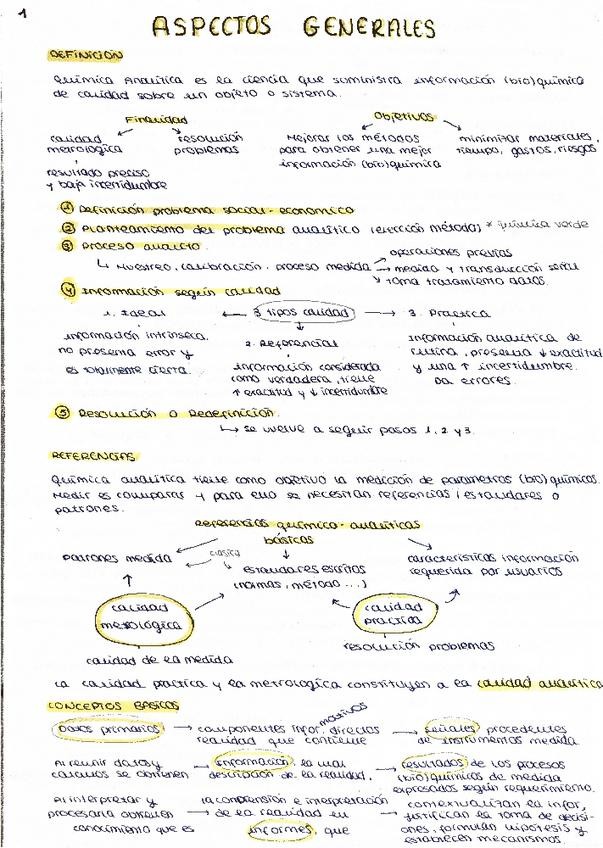 1
ASPECTOS GENERALES
DEFINICIÓN
Química Analítica es la ciencia que suministra información (bio)química
de calidad sobre un objeto o sistema.
Finalidad
Objetivos
calidad metrologica
resolución problemas
Mejorar los métodos para obtener una mejor información (bio)química
minimizar materiales, tiempo, gastos, riesgos
resultado preciso
y baja incertidumbre
① Definición problema social-económico
② Planteamiento del problema analítico (elección método) * química verde
③ Proceso analítico.
↳ Muestreo, calibración, proceso medida
operaciones previas
medida y transducción señal
toma tratamiento datos.
④ Información según calidad
1. Ideal ← 3 tipos calidad → 3. Practica
información intrínseca,
no presenta error y
es totalmente cierta.
2. Referencial
información considerada
como verdadera, tiene
↑ exactitud y ↓ incertidumbre
información analítica de
rutina, presenta ↓ exactitud
y una ↑ incertidumbre.
Da errores.
⑤ Resolución o Redefinición.
↳ se vuelve a seguir pasos 1, 2 y 3.
REFERENCIAS
Química analítica tiene como objetivo la medición de parametros (bio)químicos.
Medir es comparar y para ello se necesitan referencias / estandares o
patrones.
referencias químico-analíticas
básicas
patrones medida
clasica
estandares escritos
(normas, método...)
características información
requerida por usuarios
calidad
metrológica
calidad
practica
resolución problemas
calidad de la medida
La calidad practica y la metrologica constituyen a la calidad analítica
CONCEPTOS BASICOS
Datos primarios → componentes infor​mativos, directos → señales procedentes
realidad que contiene
de instrumentos medida
Al reunir datos y → información, la cual → resultados de los procesos
calculos se obtienen
descripción de la realidad.
(bio)químicos de medida
expresados según requerimiento.
Al interpretar y
procesarla obtienen
conocimiento que es
la comprensión e interpretación
→ de la realidad en →
informes, que
contextualizan la infor,
justifican la toma de decisi-
ones, formulan hipótesis y
establecen mecanismos.